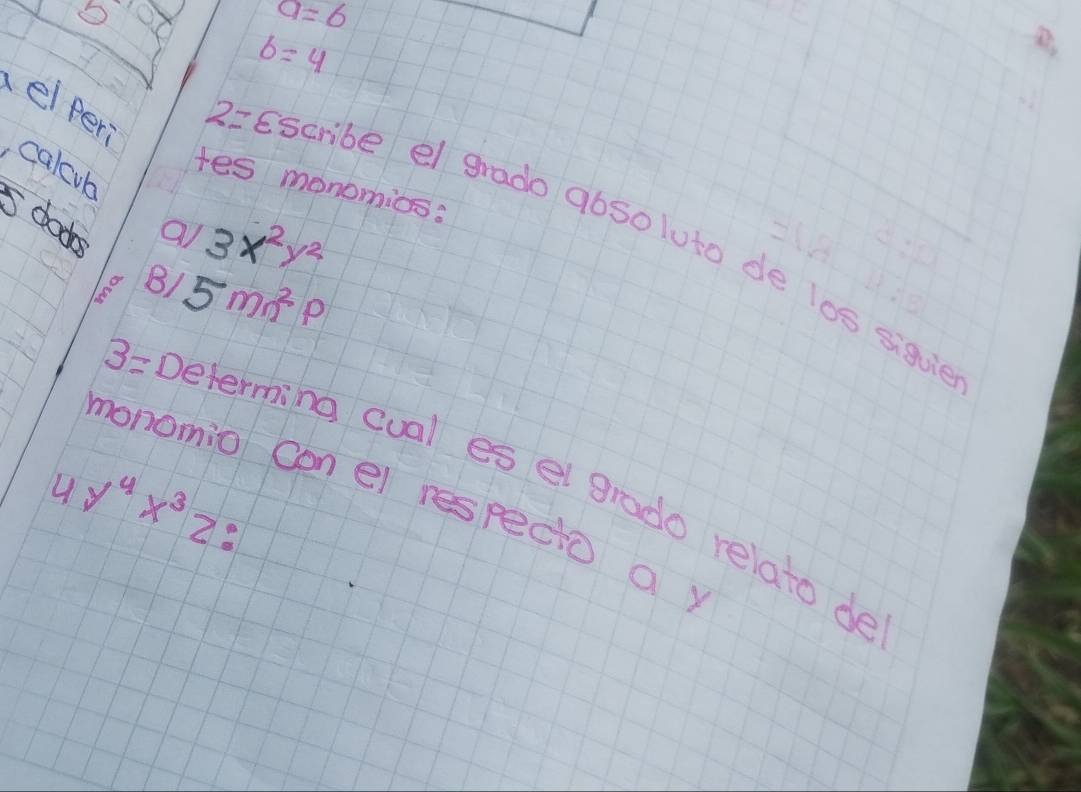 5
a=6
b=4
el Peri
, calcula
5 dados
ma
2=Escribe el grado absoluto de los siguien
tes monomios:
a/ 3x²y²
B/ 5mn²p
3=Determina cual es el grado relato del
monomio con el respecto a y
4y⁴x³z: